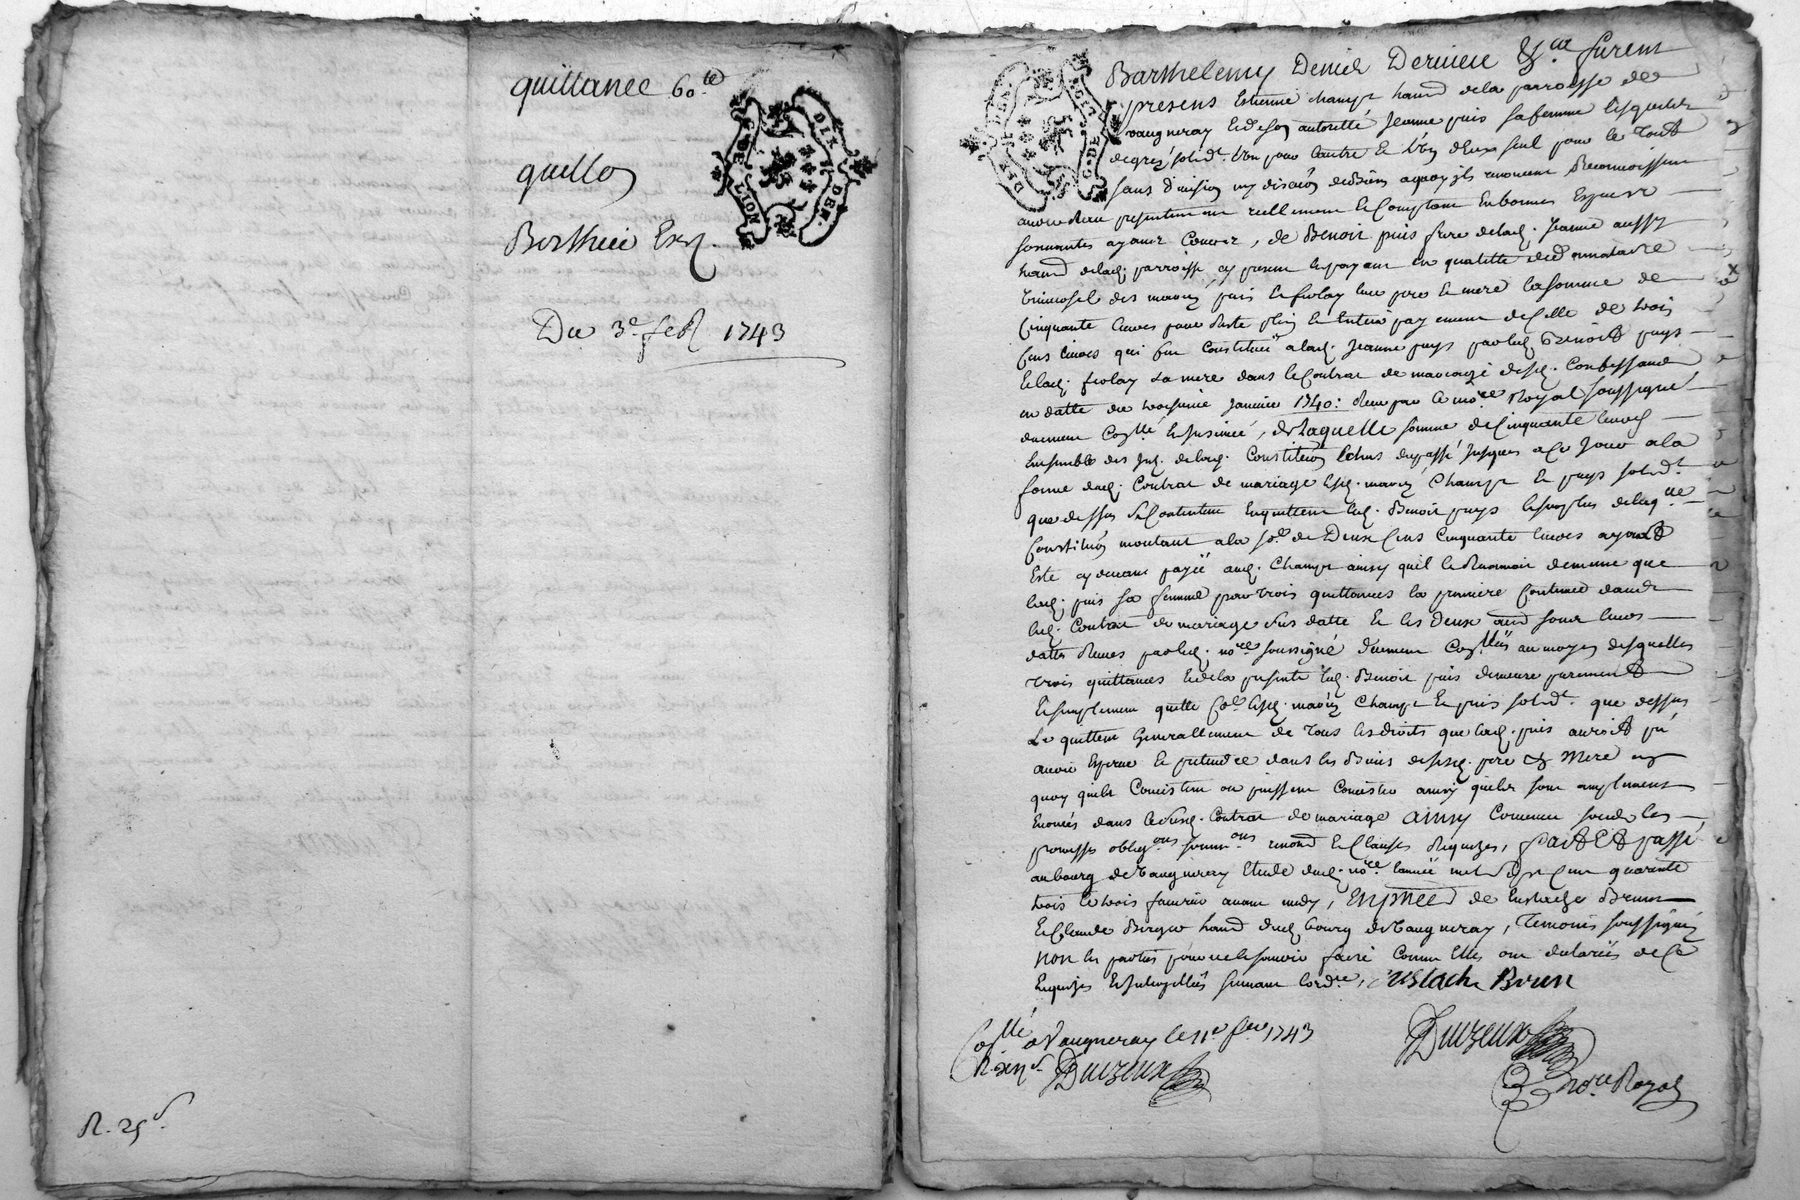 quittance 60.te
G. DE LION
DIX DEN.
Du 3e feb 1743
R. 25 s.
Barthelemy Denid Deriviere &ca furent
presens Estienne champt habnd de la parroisse de
vaugneray et de son autoritté Jeanne puis sa femme lesquels
de gré solidt. l'un pour l'autre et l'un d'eux seul pour le Tout
sans division ny discuon de biens a quoy ils renoncent Reconnoissent
avoir Receu presentement reellement et Comptant en bonnes Especes
sonnantes ayant Cours, de Benoit puis frere de lad. Jeanne aussy
habnd de lad. parroisse cy present et payant en quallitté de donnataire
universel des mariez puis et fiolay leur pere et mere la somme de
Cinquante livres pour Reste plein et Entier payement de Celle de trois
Cens livres qui fut Constituée a lad. Jeanne puys par led. Benoit puys
et lad. fiolay sa mere dans le Contrat de mariage desd. Confessants
en datte du troisieme Janvier 1740: Receu par le nore Royal soussigné,
duement Conllé et Insinué, de laquelle somme de Cinquante livres
Ensemble des Int. de lad. Constitution Echus du passé jusques a ce Jour a la
forme dud. Contrat de mariage lesd. mariez Champt et puys solidt.
que dessus se Contentent en quittent led. Benoit puys le surplus de lad.
Constituon montant a la so.e de Deux Cens Cinquante livres ayant
Esté cy devant payée aud. Champt ainsy qu'il le Reconnoit de meme que
lad. puis sa femme par trois quittances la premiere Contenue dans
led. Contrat de mariage sus datté et les deux
dattes Receues par led. nore soussigné duement Conllées au moyen desquelles
trois quittances et de la presente led. Benoit puis demeure purement
et simplement quitte lesd. mariez Champt et puis solidt. que dessus
Le quittent Generallement de Tous les droits que lad. puis auroit pu
avoir Esperer et pretendre dans les Biens desd. pere & Mere en
quoy qu'ils Consistent ou puissent Consister ainsy qu'ils sont amplement
Enoncés dans led. Contrat de mariage ainsy Convenu sous les
promesses obligons soumons renond et Clauses Requizes, fait et passé
au bourg de Vaugneray Etude dud. nore l'année mil sept Cent quarante
trois le trois fevrier avant midy, En pnce de Eustache Brun
et Claude habnd dud. bourg de Vaugneray, Temoins soussignez
non les parties pour ne le sçavoir faire Comme Elles ont declarées de Ce
Enquizes suivant l'ordce, Eustach Brun
Conllé a Vaugneray le 11e fer 1743
Duizeux
Duizeux
nore Royal